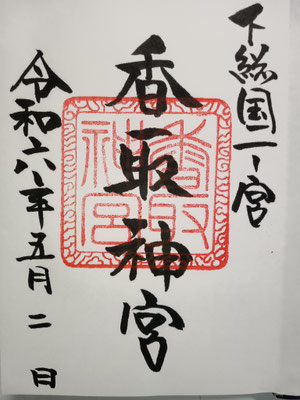 下総国一ノ宮
香取神宮
香取神宮
令和六年五月二日